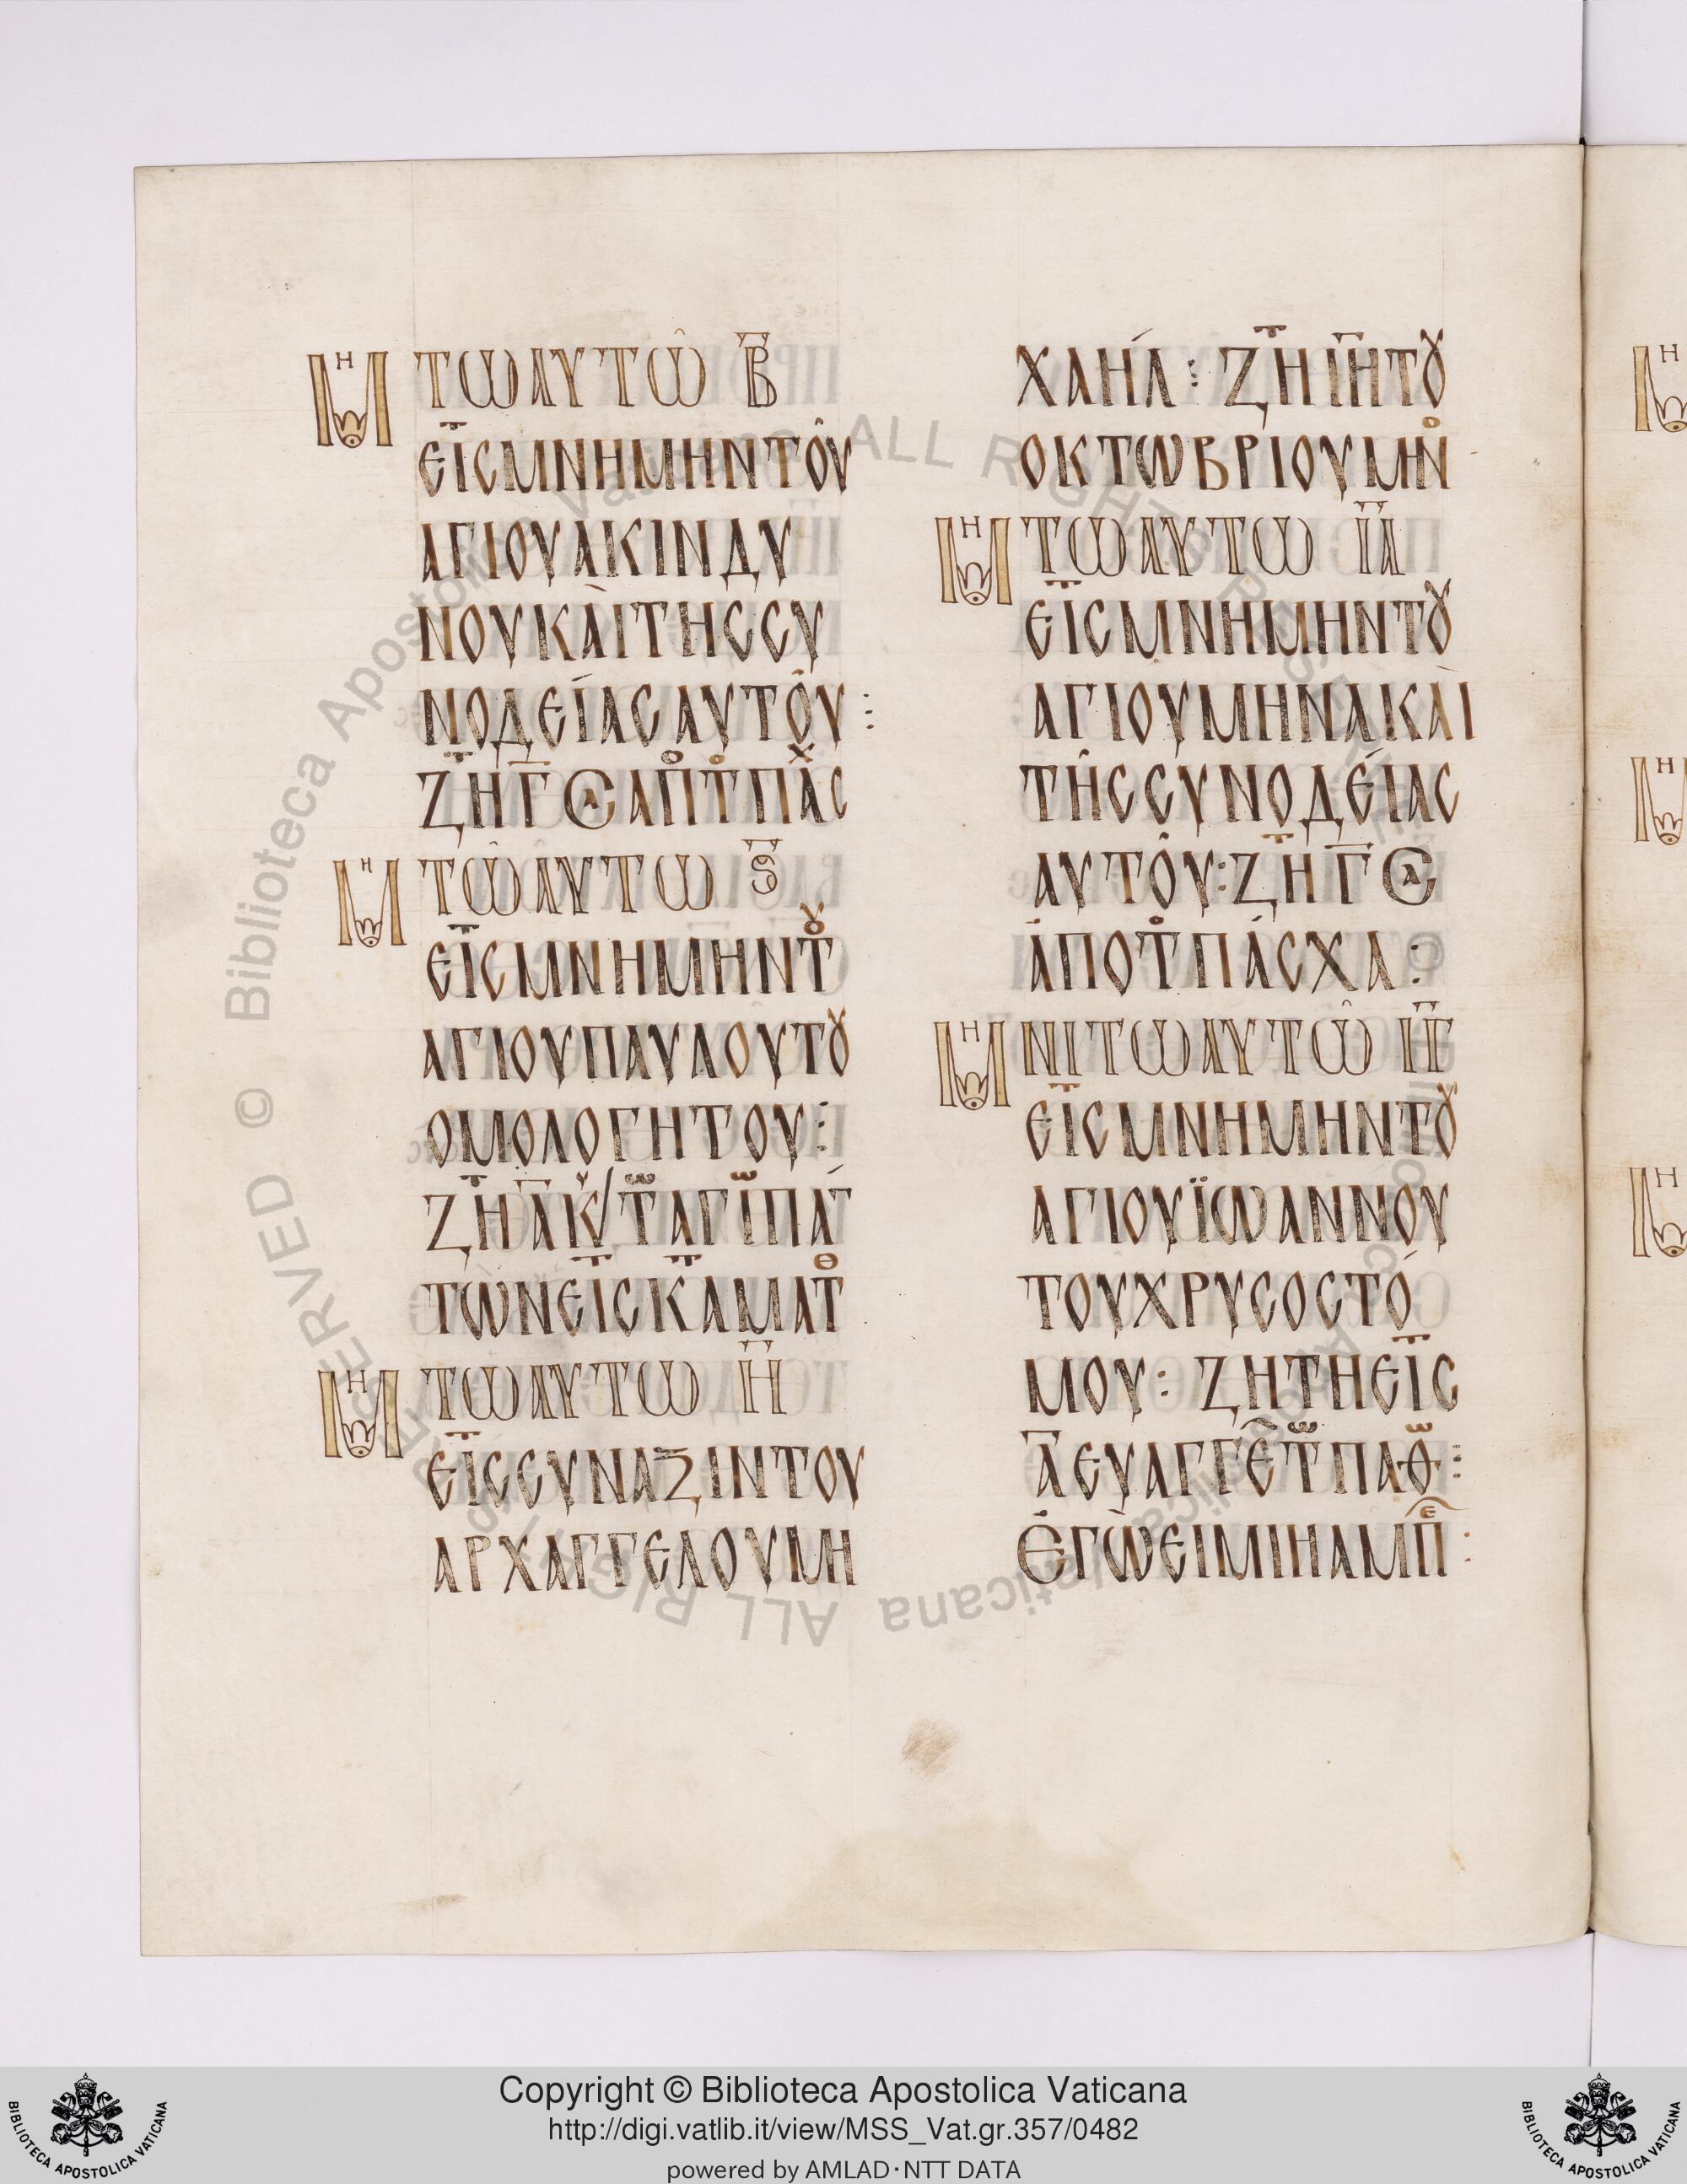 ΜΗ ΤΩ ΑΥΤΩ̑ Β̅
ΕΙ̅Τ̅Σ ΜΝΗΜΗΝ ΤΟΥ̑
ΑΓΙΟΥ ΑΚΙΝΔΥ
ΝΟΥ ΚΑῚ ΤΗΣ ΣΥ
ΝΟΔΕΊΑΣ ΑΥΤΟΥ̑ :
ΖΗ̅Τ Γ̅ ΑΠΟ Τ̊ ΠΑΧΣ
ΜΗ ΤΩ̑ ΑΥΤΩ Ϛ̅
ΕΙΣ ΜΝΗΜΗΝ ΤȢ
ΑΓΙΟΥ ΠΑΥΛΟΥ ΤȢ
ΟΜΟΛΟΓΗΤΟΥ :
ΖΗΤ Α̅ ΚΥ/ ΤΩ ΑΓΙΩ ΠΑ
ΤΩΝ ΕΙΣ Κ̅ ΑΜΑΤΘ
ΜΗ ΤΩ ΑΥΤΩ Η̅
ΕΙΣ ΣΥΝΑΞΙΝ ΤΟΥ
ΑΡΧΑΓΓΕΛΟΥ ΜΗ
ΧΑΉΛ : ΖΗΤ ΙΗ̅ ΤȢ
ΟΚΤΩΒΡΙΟΥ ΜΗΝΟ
ΜΗ ΤΩ ΑΥΤΩ ΙΑ̅
ΕΙΣ ΜΝΗΜΗΝ ΤȢ
ΑΓΙΟΥ ΜΗΝΑ ΚΑῚ
ΤΗ̑Σ ΣΥΝΟΔΕΊΑΣ
ΑΥΤΟΥ̑ : ΖΗΤ Γ̅
ἈΠΟ Τ̊ ΠΆΣΧΑ :
ΜΗΝΙ ΤΩ ΑΥΤΩ̑ ΙΓ̅
ΕΙΣ ΜΝΗΜΗΝ ΤȢ
ΑΓΙΟΥ ΪΩΑΝΝΟΥ
ΤΟΥ ΧΡΥΣΟΣΤΌ
ΜΟΥ : ΖΗΤΗ ΕΙΣ
Α̅ ΕΥΑΓΓΕ ΤΩ ΠΑΘΩ :
ἘΓῺ ΕΙΜΙ Η ΑΜΠΕ :
Copyright © Biblioteca Apostolica Vaticana
http://digi.vatlib.it/view/MSS_Vat.gr.357/0482
powered by AMLAD·NTT DATA
BIBLIOTECA APOSTOLICA VATICANA
BIBLIOTECA APOSTOLICA VATICANA